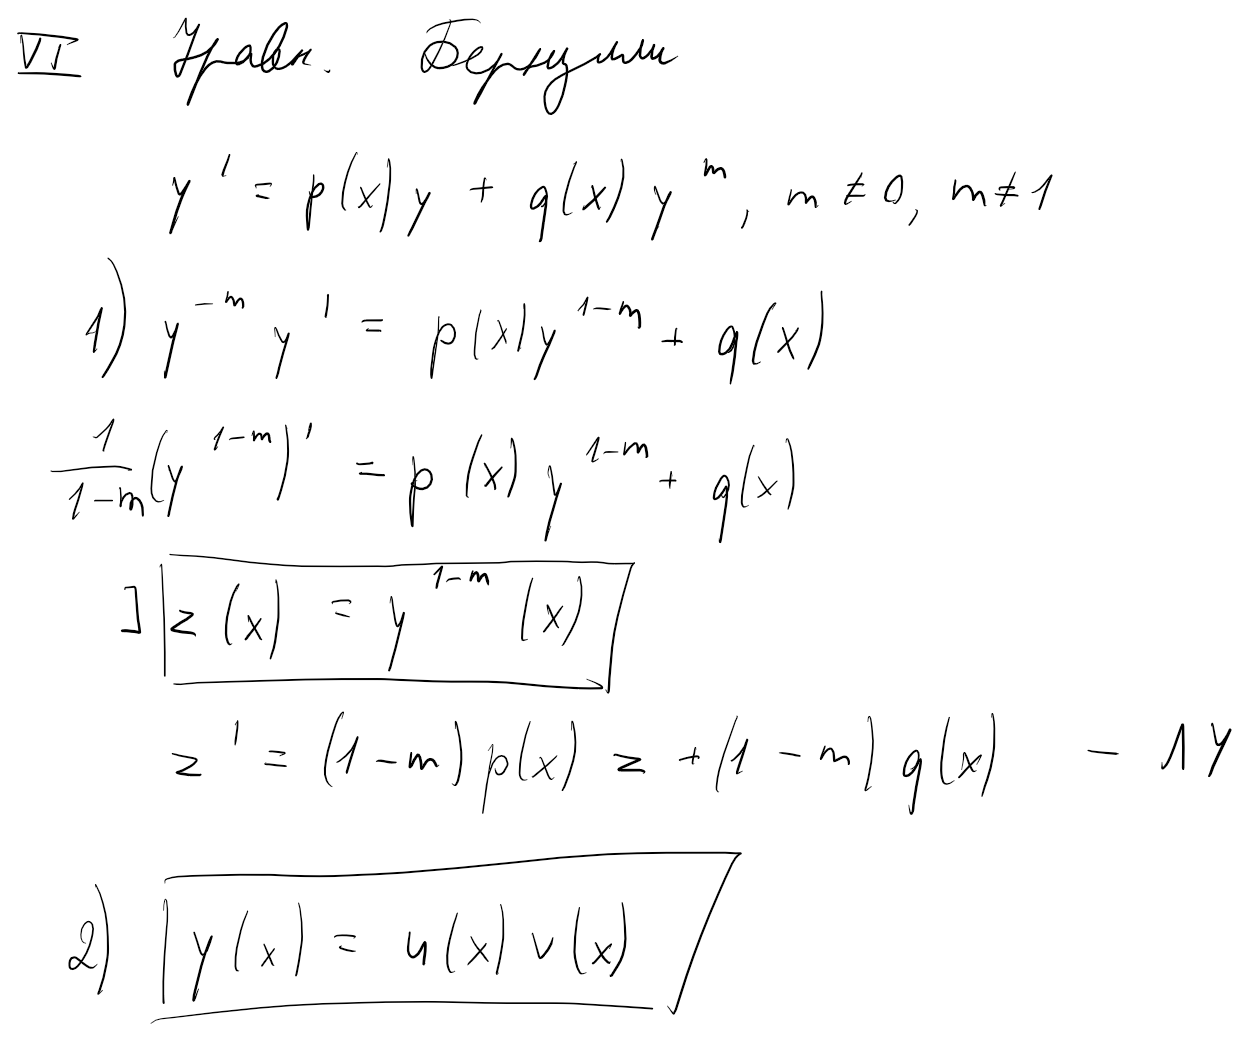 VI Уравн. Бернулли
y' = p(x)y + q(x) y^m, m ≠ 0, m ≠ 1
1) y^{-m} y' = p(x)y^{1-m} + q(x)
\frac{1}{1-m}(y^{1-m})' = p(x) y^{1-m} + q(x)
] z(x) = y^{1-m}(x)
z' = (1-m)p(x) z + (1-m) q(x) - ЛУ
2) y(x) = u(x) v(x)